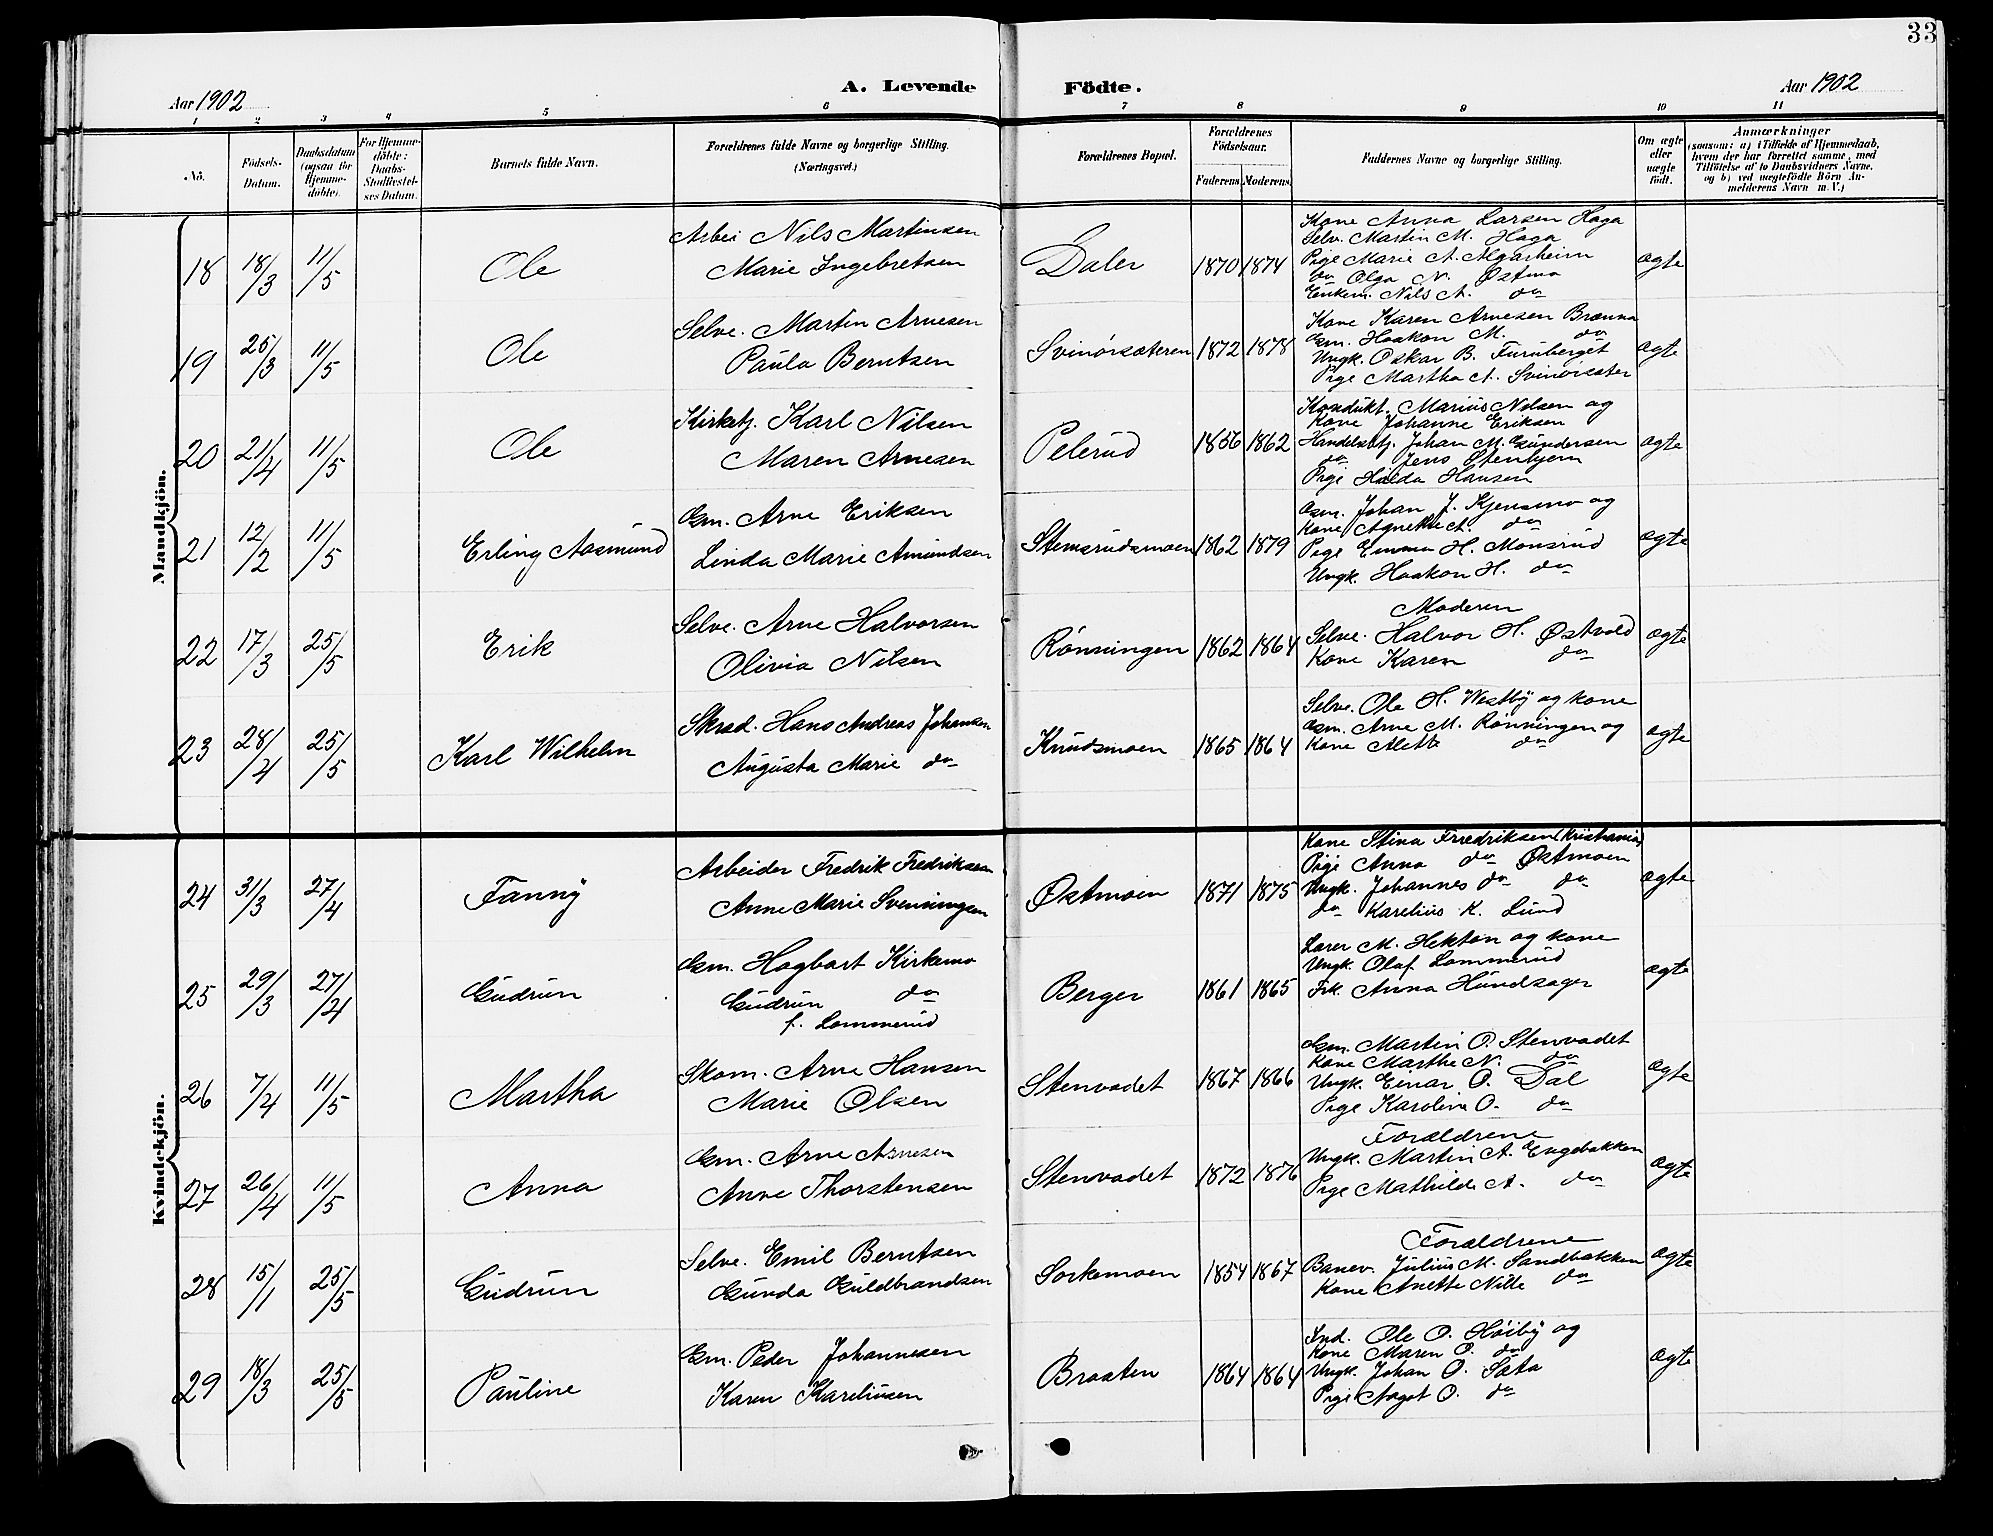 33
Aar 1902
A. Levende
Födte.
Aar 1902
1 2 3 4 5 6 7 8 9 10 11
No.
Födsels-
Datum.
Daabsdatum
(ogsaa for
Hjemme-
döbte).
For Hjemme-
döbte:
Daabs-
Stadfæstel-
ses Datum.
Barnets fulde Navn.
Forældrenes fulde Navne og borgerlige Stilling.
(Næringsvei.)
Forældrenes Bopæl.
Forældrenes
Födselsaar.
Faderens. Moderens.
Faddernes Navne og borgerlige Stilling.
Om ægte
eller
uægte
födt.
Anmærkninger
(saasom: a) i Tilfælde af Hjemmedaab,
hvem der har forrettet samme, med
Tilföielse af to Daabsvidners Navne,
og b) ved uægtefödte Börn An-
melderens Navn m. V.)
Mandkjön.
18 18/3 11/5 Ole
Arbei Nils Martinsen
Marie Ingebretsen
Daler 1870 1874
Kone Anna Larsen Haga
Selv. Martin M. Haga
Pige Marie A. Algarheim
do Olga N. Østmo
Enkem. Nils A. do
ægte
19 25/3 11/5 Ole
Selve. Martin Arnesen
Paula Berntsen
Svinørsæteren 1872 1878
Kone Karen Arnesen Brænna
Gsm. Haakon M. do
Ungk. Oskar B. Furuberget
Pige Martha A. Svinørsæter
ægte
20 21/4 11/5 Ole
Kirketj. Karl Nilsen
Maren Arnesen
Pelerud 1856 1862
Kondukt. Marius Nilsen og
Kone Johanne Eriksen
Handelsbtj. Johan M. Gundersen
do Jens Stenhjem
Pige Hilda Hansen
ægte
21 12/2 11/5 Erling Aasmund
Gm. Arne Eriksen
Linda Marie Amundsen
Stemsrudsmoen 1862 1879
Gsm. Johan J. Kjensmo og
Kone Agnethe A. do
Pige Emma H. Monsrud
Ungk. Haakon H. do
ægte
22 17/3 25/5 Erik
Selve. Arne Halvorsen
Olivia Nilsen
Rønningen 1862 1864
Moderen
Selve. Halvor H. Østvold
Kone Karen do
ægte
23 28/4 25/5 Karl Wilhelm
Skræd. Hans Andreas Johansen
Augusta Marie do
Knudsmoen 1865 1864
Selve. Ole H. Westby og kone
Gsm. Arne M. Rønningen og
Kone Alette do
ægte
Kvindekjön.
24 31/3 27/4 Fanny
Arbeider Fredrik Fredriksen
Anne Marie Svenningsen
Østmoen 1871 1875
Kone Stina Fredriksen (Kristiania)
Pige Anna do Østmoen
Ungk. Johannes do do
do Karelius K. Lund
ægte
25 29/3 27/4 Gudrun
Gm. Hagbart Kirkemo
Gudrun do
f. Lommerud
Berger 1861 1865
Lærer M. Hekton og kone
Ungk. Olaf Lommerud
Frk. Anna Hundsager
ægte
26 7/4 11/5 Martha
Skom. Arne Hansen
Marie Olsen
Stenvadet 1867 1866
Gm. Martin O. Stenvadet
Kone Marthe N. do
Ungk. Einar O. Dal
Pige Karoline O. do
ægte
27 26/4 11/5 Anna
Gm. Arne Arnesen
Anne Thorstensen
Stenvadet 1872 1876
Forældrene
Ungk. Martin A. Engebakken
Pige Mathilde A. do
ægte
28 15/1 25/5 Gudrun
Selve. Emil Berntsen
Gunda Guldbrandsen
Sorkemoen 1854 1867
Forældrene
Banev. Julius M. Sandbakken
Kone Anette Nille do
ægte
29 18/3 25/5 Pauline
Gm. Peder Johannesen
Karen Kareliusen
Braaten 1864 1864
Ind. Ole O. Høiby og
Kone Maren O. do
Ungk. Johan O. Sæta
Pige Aagot O. do
ægte